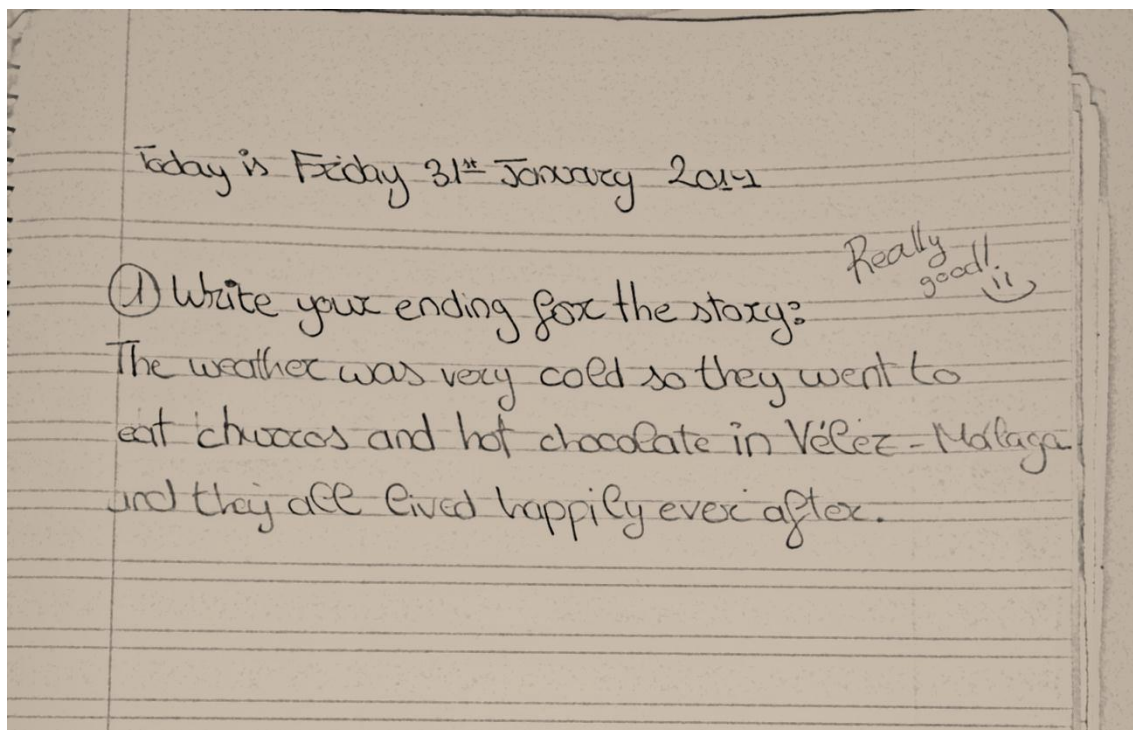 Today is Friday 31st January 2014
Really
good! :)
① Write your ending for the story:
The weather was very cold so they went to
eat churros and hot chocolate in Vélez-Málaga
and they all lived happily ever after.